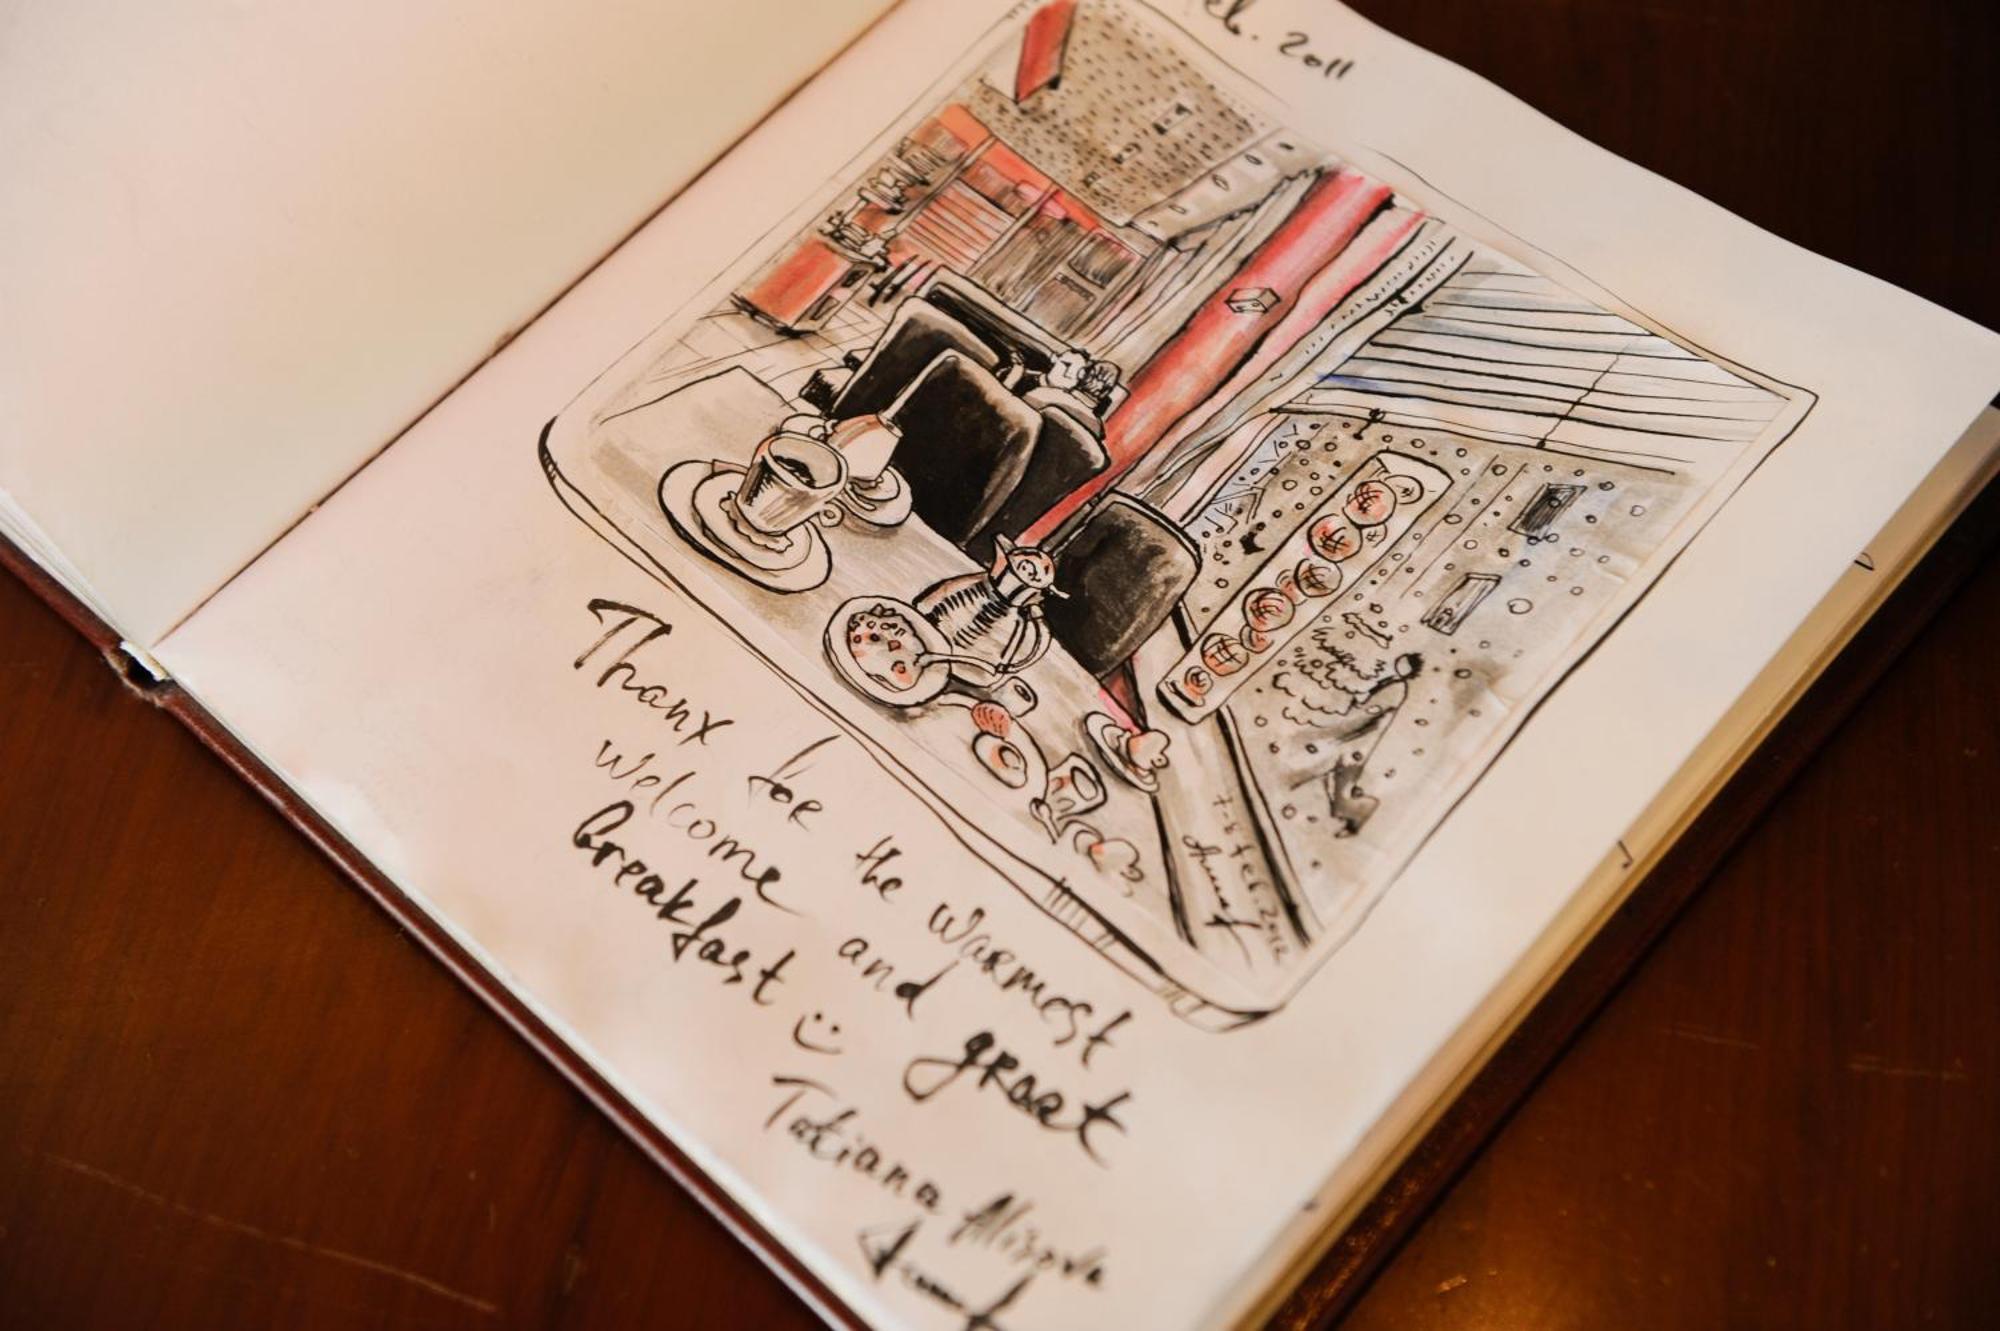 Feb. 2011
7-8 Feb. 2012
Thanx for the warmest
welcome and great
breakfast :)
Tatiana Alizova